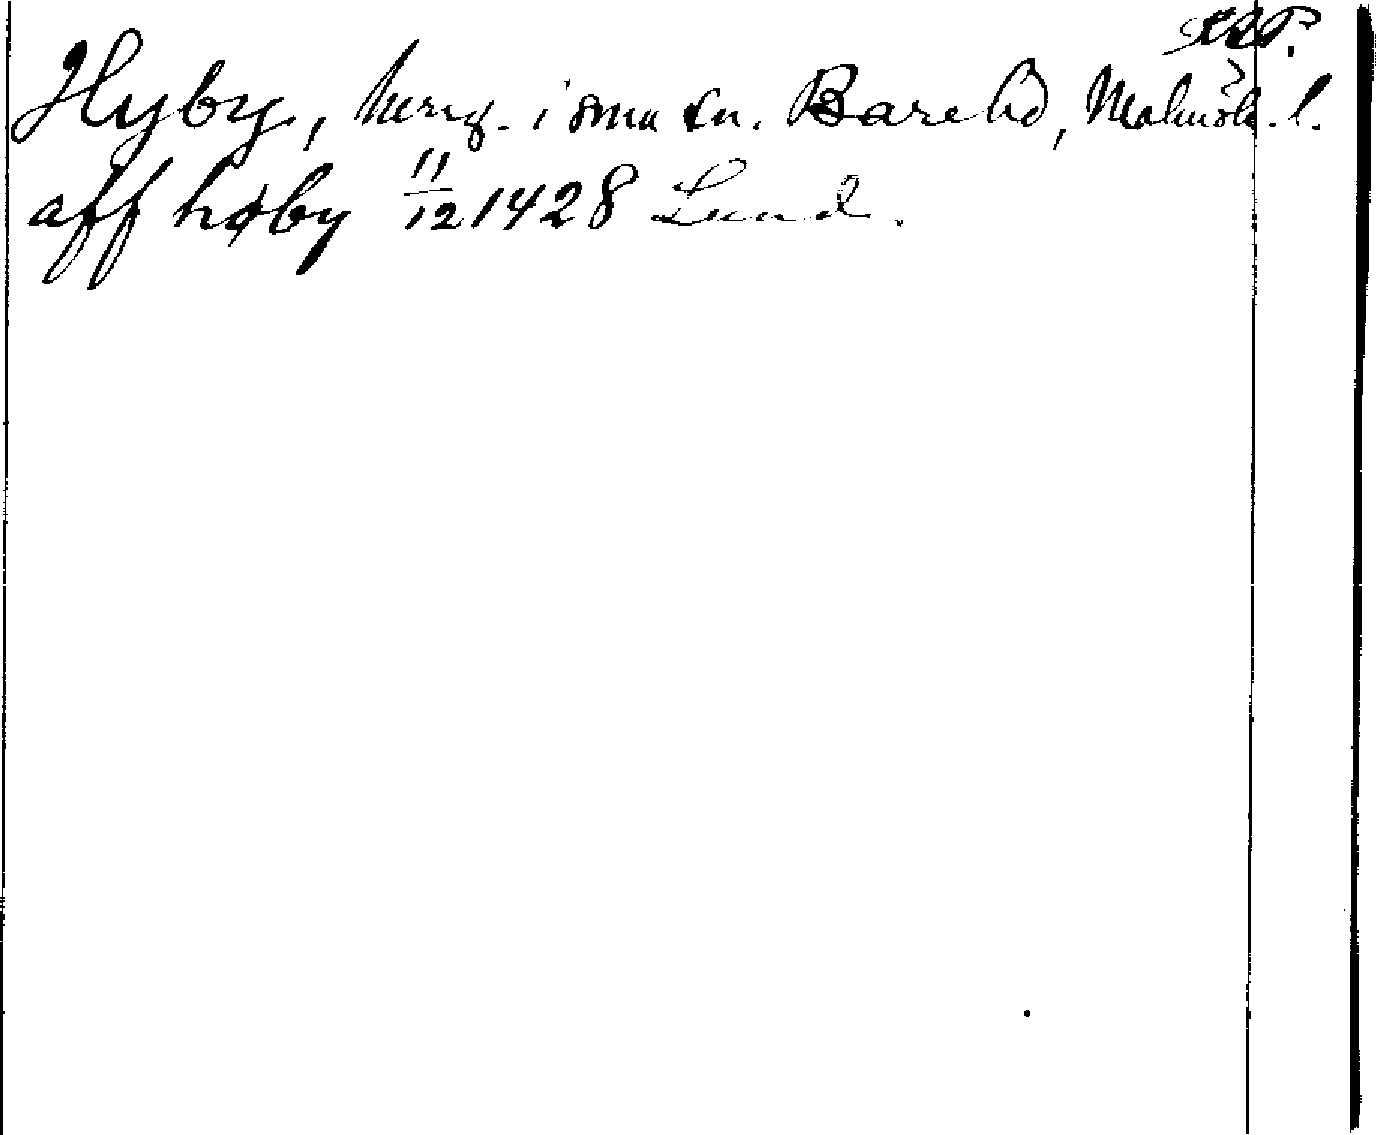 Hyby, herrg. i sma sn. Bara hd, Malmöh. l.
aff høby 11/12 1428 Lund.